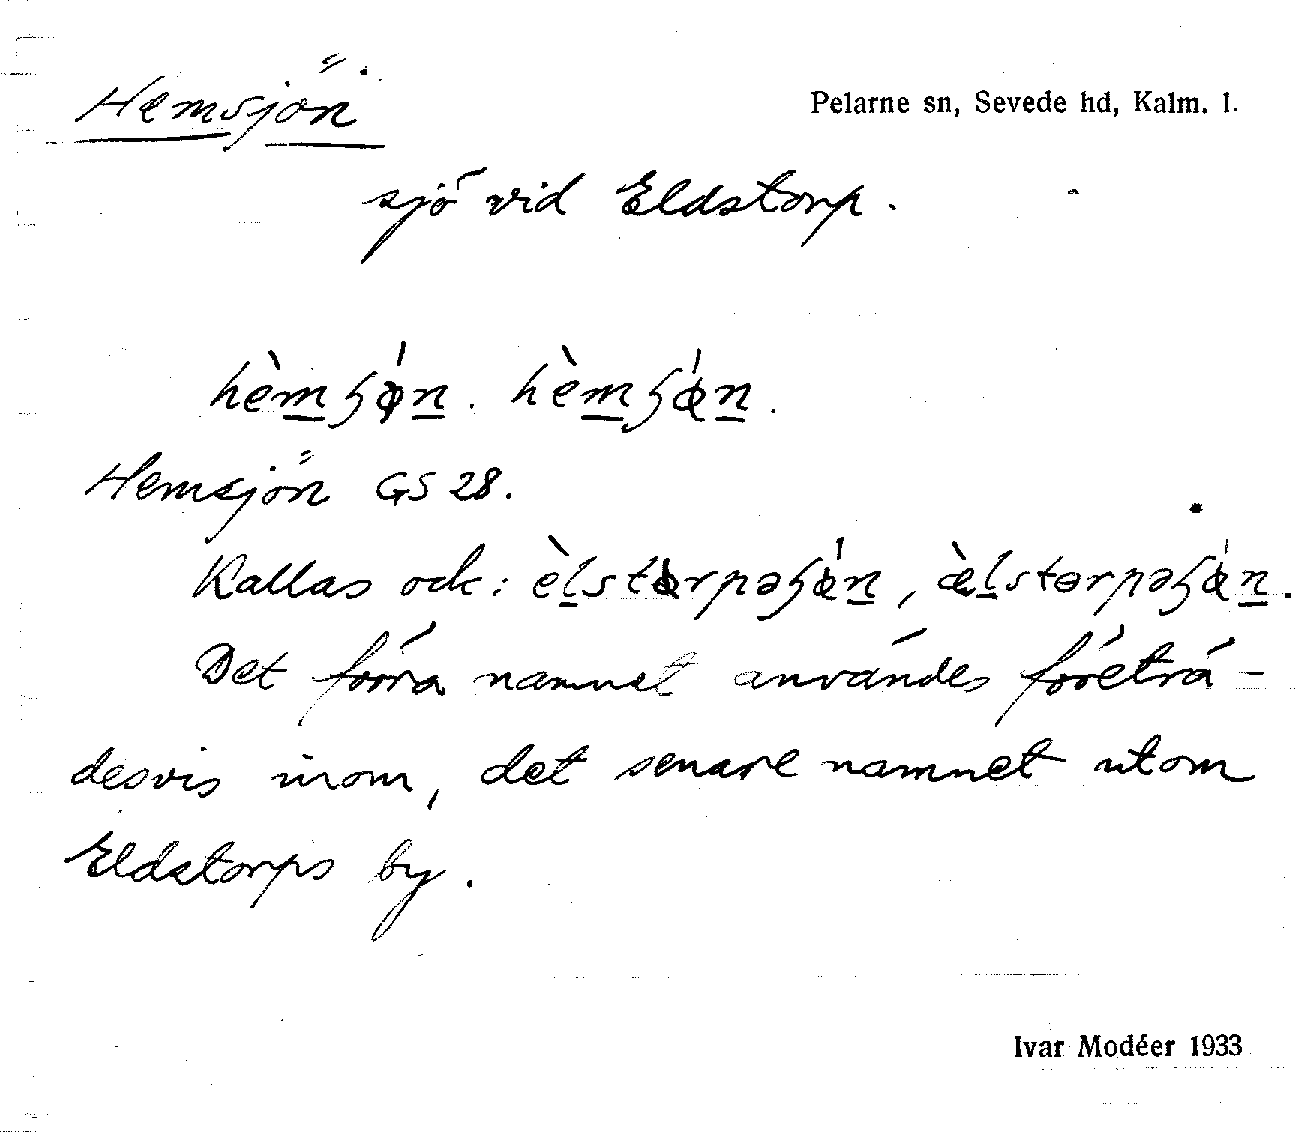 Hemsjön
Pelarne sn, Sevede hd, Kalm. l.
sjö vid Eldstorp.
hèmɧǿn. hèmɧǿn.
Hemsjön GS 28.
Kallas ock: èlstɵrpəɧǿn, æ̀lstɵrpəɧǿn.
Det förra namnet användes företrä-
desvis inom, det senare namnet utom
Eldstorps by.
Ivar Modéer 1933